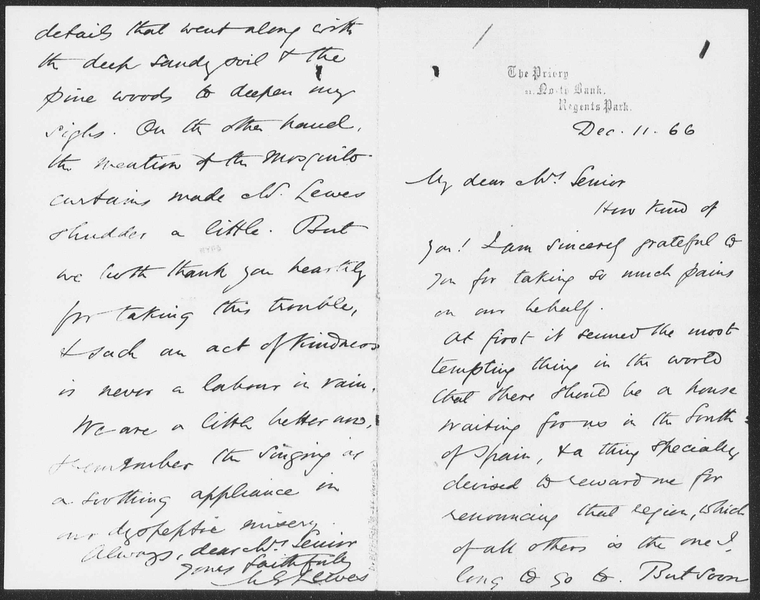 The Priory
21. North Bank,
Regents Park.
Dec. 11. 66
My dear Mrs. Senior
How kind of
you! I am sincerely grateful to
you for taking so much pains
on our behalf.
At first it seemed the most
tempting thing in the world
that there should be a house
waiting for us in the South
of Spain, & a thing specially
devised to reward me for
renouncing that region, which
of all others is the one I
long to go to. But soon
details that went along with
the deep sandy soil & the
pine woods to deepen my
sighs. On the other hand,
the mention of the Mosquito
curtains made Mr. Lewes
shudder a little. But
we both thank you heartily
for taking this trouble,
& such an act of kindness
is never a labour in vain.
We are a little better now,
& remember the singing as
a soothing appliance in
our dyspeptic misery.
Always, dear Mrs. Senior
Yours faithfully
M E Lewes